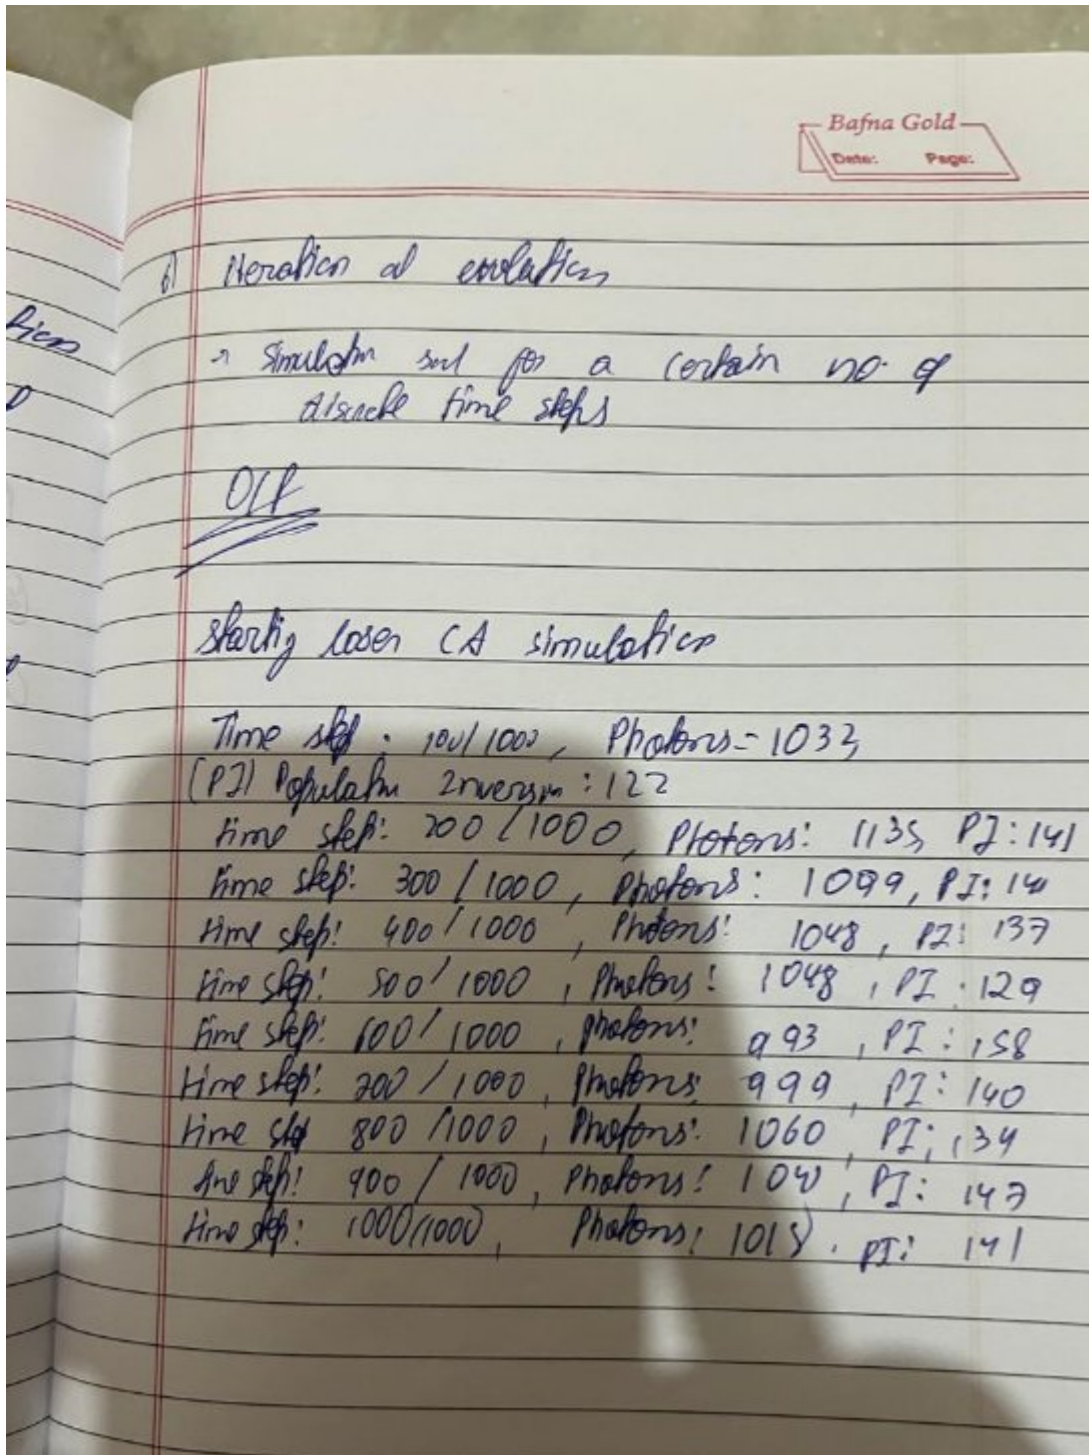 Bafna Gold
Date: Page:
6) Iteration of evolution
→ Simulatn for a certain no. of
discrete time steps
O/P
starting laser CA simulation
Time step : 100/1000, Photons = 1033
(PI) Populatn Inversn : 122
time step: 200 / 1000, Photons: 1135, PI: 141
time step: 300 / 1000, Photons: 1099, PI:
time step: 400 / 1000, Photons: 1048, PI: 137
time step: 500 / 1000, Photons: 1048, PI: 129
time step: 600 / 1000, photons: 993, PI: 158
time step: 700 / 1000, Photons: 999, PI: 140
time step 800 / 1000, Photons: 1060, PI: 134
time step: 900 / 1000, Photons: PI: 147
time step: 1000/1000, Photons: 1015, PI: 141